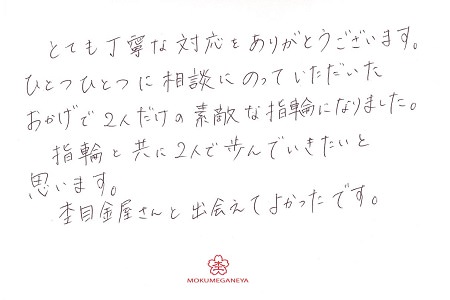 とても丁寧な対応をありがとうございます。
ひとつひとつに相談にのっていただいた
おかげで2人だけの素敵な指輪になりました。
指輪と共に2人で歩んでいきたいと
思います。
杢目金屋さんと出会えてよかったです。
杢
MOKUMEGANEYA